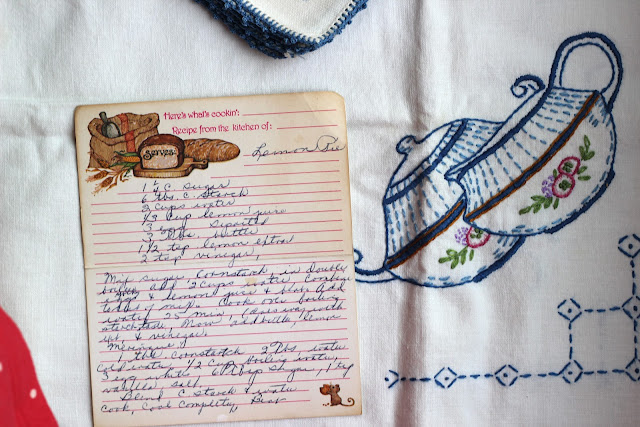 Here's what's cookin':
Recipe from the kitchen of:
Serves:
Lemon Pie
1 ¼ C. Sugar
6 Tbs. C. Starch
2 cups water
1/3 cup lemon juice
3 eggs Separated
3 Tbs. butter
1 ½ tsp lemon extra
2 tsp vinegar,
Mix sugar Cornstarch, in double
boiler add 2 Cups water Combine
& lemon juice & beat add
Cook over boiling
water 25 min,
starch taste, Now add butter, lemon
ext, & vinegar
Meringue,
1 Tbs Cornstarch 2 Tbs. water
Cold water ½ Cup Boiling water,
3 egg 6 Tbsp Sugar, 1 tsp
vanilla Salt,
Blend C. Starch & water
Cook, Cool Completly, Beat